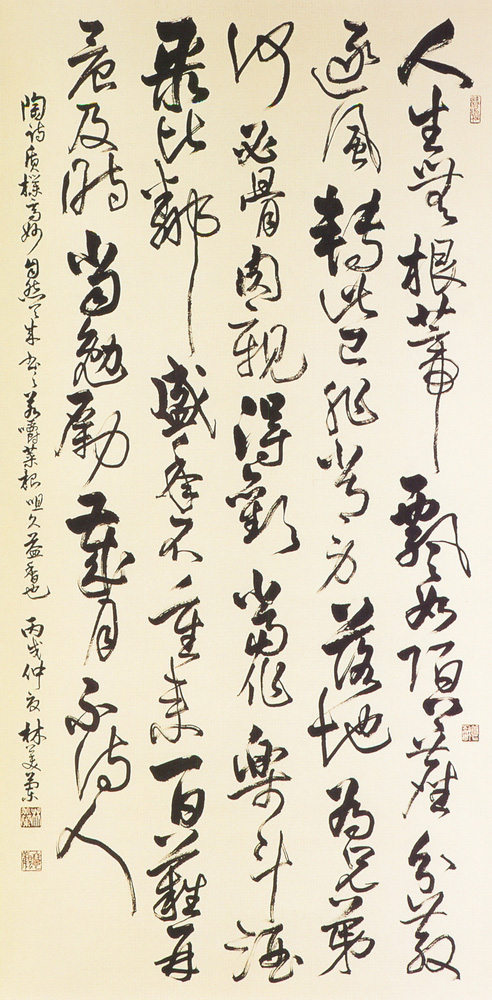 人生無根蒂飄如陌上塵分散
逐風轉此已非常身落地為兄弟
何必骨肉親得歡當作樂斗酒
聚比鄰盛年不重來一日難再
晨及時當勉勵歲月不待人
陶詩質樸高妙自然天成書之若嚼菜根咀久益香也 丙戌仲夏 林美蘭